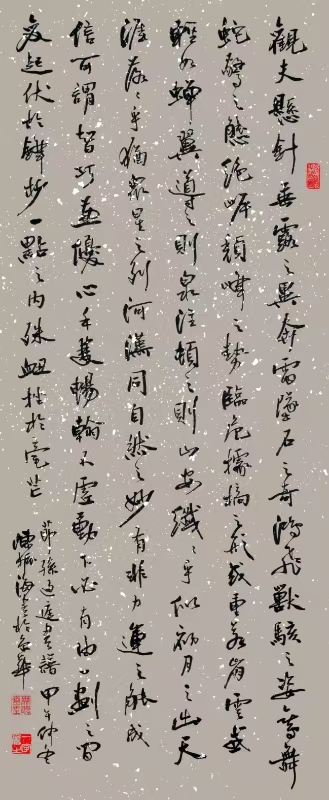 觀夫懸針垂露之異奔雷墜石之奇鴻飛獸駭之姿鸞舞
蛇驚之態絕岸頹峰之勢臨危據槁之形或重若崩雲或
輕如蟬翼導之則泉注頓之則山安纖〻乎似初月之出天
涯落〻乎猶眾星之列河漢同自然之妙有非力運之能成
信可謂智巧兼優心手雙暢翰不虛動下必有由一畫之間
變起伏於鋒杪一點之內殊衄挫於毫芒
節孫過庭書譜甲午仲冬
陳振海書於京華